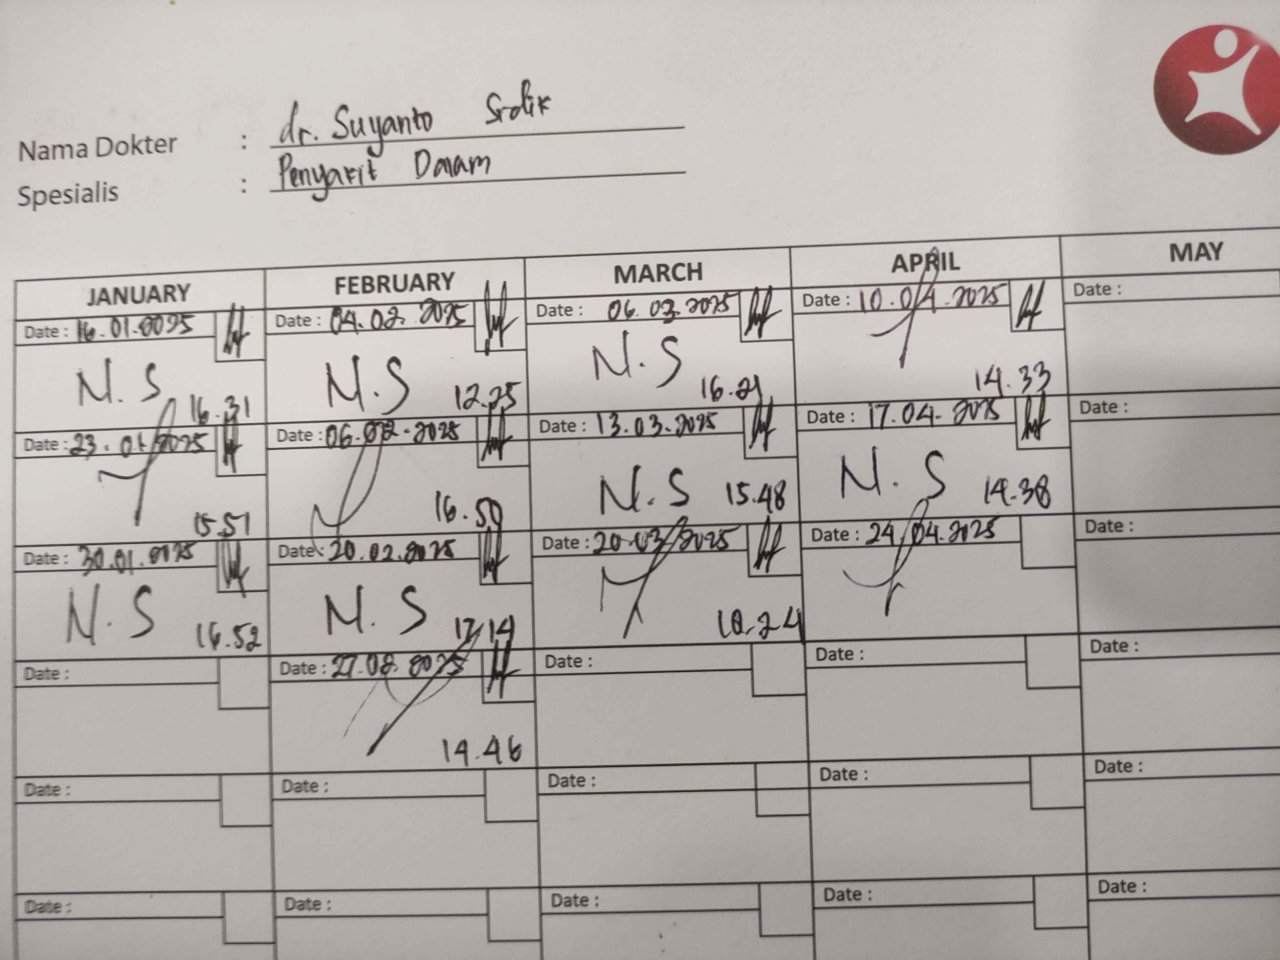 Nama Dokter : dr. Suyanto Sidik
Spesialis : Penyakit Dalam
JANUARY
Date : 16.01.2025
N.S
16.31
Date : 23.01.2025
15.51
Date : 30.01.2025
N.S
16.52
Date :
Date :
Date :
FEBRUARY
Date : 04.02.2025
N.S
12.25
Date : 06.02.2025
16.50
Date : 20.02.2025
N.S
17.14
Date : 27.02.2025
14.46
Date :
Date :
MARCH
Date : 06.03.2025
N.S
16.21
Date : 13.03.2025
N.S
15.48
Date : 20.03.2025
Date :
Date :
Date :
APRIL
Date : 10.04.2025
14.33
Date : 17.04.2025
N.S
14.38
Date : 24.04.2025
Date :
Date :
Date :
MAY
Date :
Date :
Date :
Date :
Date :
Date :